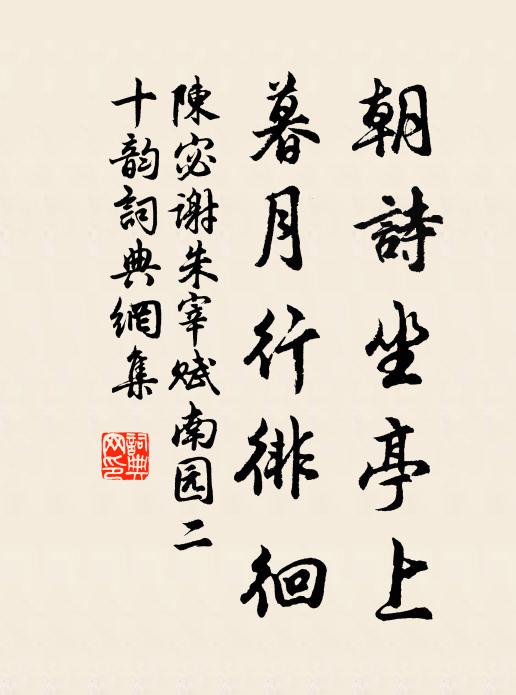 朝詩坐亭上
暮月行徘徊
陳宓谢朱宰赋南园二
十韵詞典網集
詞典网印